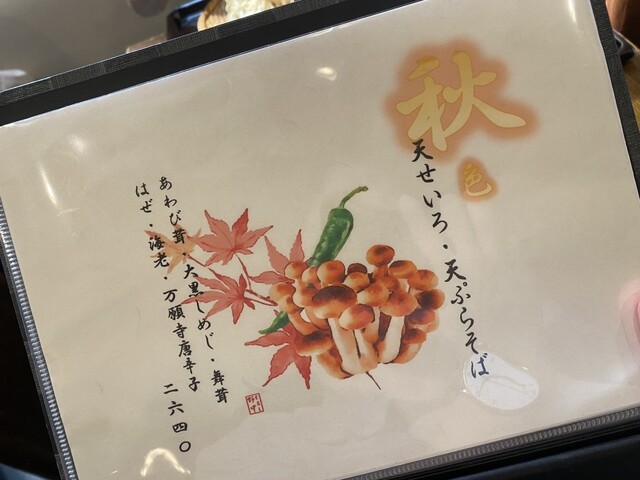 秋色
天せいろ・天ぷらそば
あわび茸・大黒しめじ・舞茸
はぜ・海老・万願寺唐辛子
二六四〇